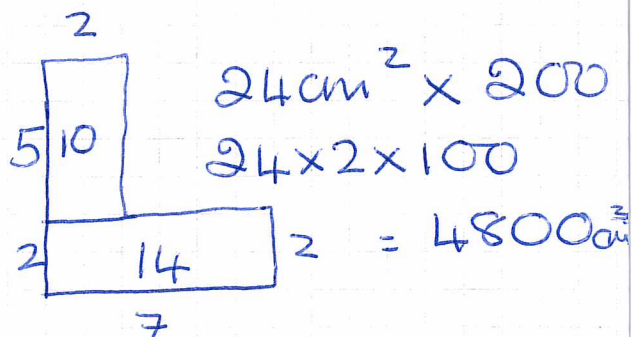 2
5 10
2 14 2
7
24cm² × 200
24×2×100
= 4800cm²